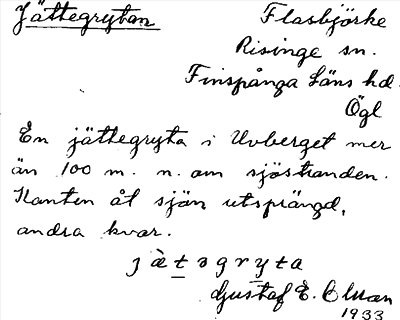 Jättegrytan
Flasbjörke
Risinge sn.
Finspånga läns hd.
Ögl
En jättegryta i Uvberget mer
än 100 m. n. om sjöstranden.
Kanten åt sjön utsprängd,
andra kvar.
jätəgryta
Gustaf E. Olsson
1933